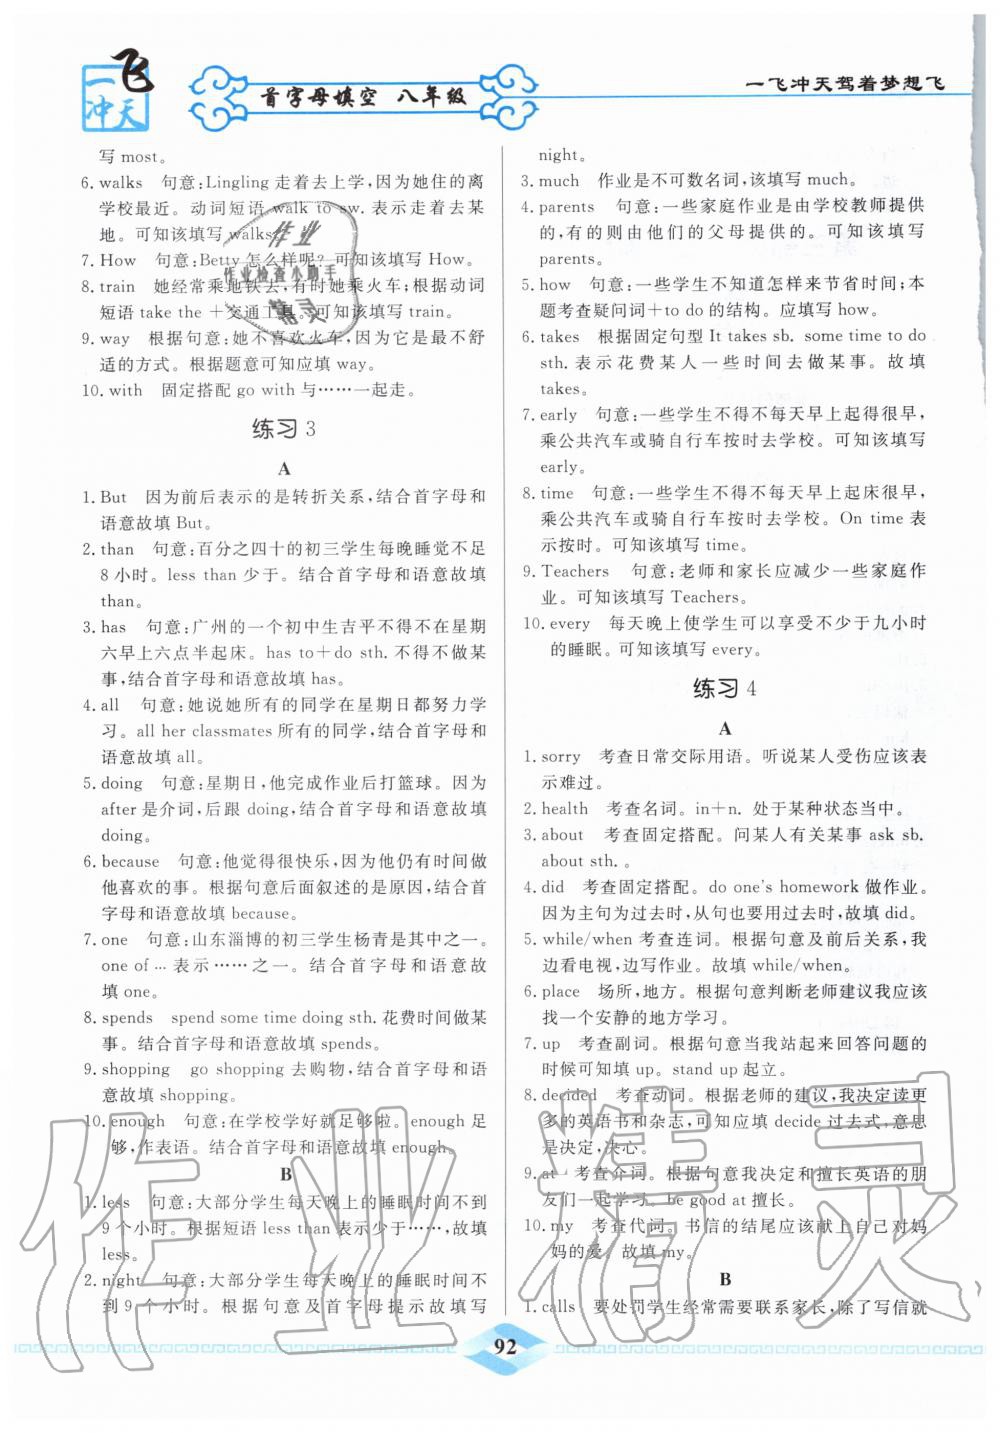 一飞冲天
首字母填空 八年级
一飞冲天驾着梦想飞
写 most。
6. walks 句意:Lingling 走着去上学,因为她住的离
学校最近。动词短语 walk to sw. 表示走着去某
地。可知该填写 walks。
7. How 句意:Betty 怎么样呢?可知该填写 How。
8. train 她经常乘地铁去,有时她乘火车;根据动词
短语 take the +交通工具。可知该填写 train。
9. way 根据句意:她不喜欢火车,因为它是最不舒
适的方式。根据题意可知应填 way。
10. with 固定搭配 go with 与……一起走。
练习 3
A
1. But 因为前后表示的是转折关系,结合首字母和
语意故填 But。
2. than 句意:百分之四十的初三学生每晚睡觉不足
8 小时。less than 少于。结合首字母和语意故填
than。
3. has 句意:广州的一个初中生吉平不得不在星期
六早上六点半起床。has to+do sth. 不得不做某
事,结合首字母和语意故填 has。
4. all 句意:她说她所有的同学在星期日都努力学
习。all her classmates 所有的同学,结合首字母和
语意故填 all。
5. doing 句意:星期日,他完成作业后打篮球。因为
after 是介词,后跟 doing,结合首字母和语意故填
doing。
6. because 句意:他觉得很快乐,因为他仍有时间做
他喜欢的事。根据句意后面叙述的是原因,结合首
字母和语意故填 because。
7. one 句意:山东淄博的初三学生杨青是其中之一。
one of … 表示……之一。结合首字母和语意故
填 one。
8. spends spend some time doing sth. 花费时间做某
事。结合首字母和语意故填 spends。
9. shopping go shopping 去购物,结合首字母和语
意故填 shopping。
10. enough 句意:在学校学好就足够啦。enough 足
够,作表语。结合首字母和语意故填 enough。
B
1. less 句意:大部分学生每天晚上的睡眠时间不到
9 个小时。根据短语 less than 表示少于……,故填
less。
2. night 句意:大部分学生每天晚上的睡眠时间不
到 9 个小时。根据句意及首字母提示故填写
night。
3. much 作业是不可数名词,该填写 much。
4. parents 句意:一些家庭作业是由学校教师提供
的,有的则由他们的父母提供的。可知该填写
parents。
5. how 句意:一些学生不知道怎样来节省时间;本
题考查疑问词+to do 的结构。应填写 how。
6. takes 根据固定句型 It takes sb. some time to do
sth. 表示花费某人一些时间去做某事。故填
takes。
7. early 句意:一些学生不得不每天早上起得很早,
乘公共汽车或骑自行车按时去学校。可知该填写
early。
8. time 句意:一些学生不得不每天早上起床很早,
乘公共汽车或骑自行车按时去学校。On time 表
示按时。可知该填写 time。
9. Teachers 句意:老师和家长应减少一些家庭作
业。可知该填写 Teachers。
10. every 每天晚上使学生可以享受不少于九小时
的睡眠。可知该填写 every。
练习 4
A
1. sorry 考查日常交际用语。听说某人受伤应该表
示难过。
2. health 考查名词。in+n. 处于某种状态当中。
3. about 考查固定搭配。问某人有关某事 ask sb.
about sth. 。
4. did 考查固定搭配。do one's homework 做作业。
因为主句为过去时,从句也要用过去时,故填 did。
5. while/when 考查连词。根据句意及前后关系,我
边看电视,边写作业。故填 while/when。
6. place 场所,地方。根据句意判断老师建议我应该
找一个安静的地方学习。
7. up 考查副词。根据句意当我站起来回答问题的
时候可知填 up。stand up 起立。
8. decided 考查动词。根据老师的建议,我决定读更
多的英语书和杂志,可知应填 decide 过去式,意思
是决定,决心。
9. at 考查介词。根据句意我决定和擅长英语的朋
友们一起学习。be good at 擅长。
10. my 考查代词。书信的结尾应该献上自己对妈
妈的爱。故填 my。
B
1. calls 要处罚学生经常需要联系家长,除了写信就
92
作业
作业检查小助手
精灵
作业精灵